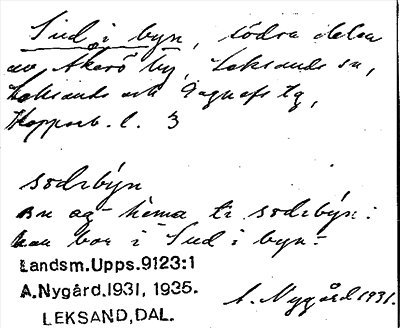 Sud i byn, södra delen
av Åkerö by, Leksands sn,
Leksands och Gagnefs tg,
Kopparb. l. 3
sodıbyn
an ag- hema te sodıbyn:
han bor i Sud i byn.-
Landsm.Upps.9123:1
A.Nygård.1931, 1935.
LEKSAND,DAL.
A. Nygård 1931.